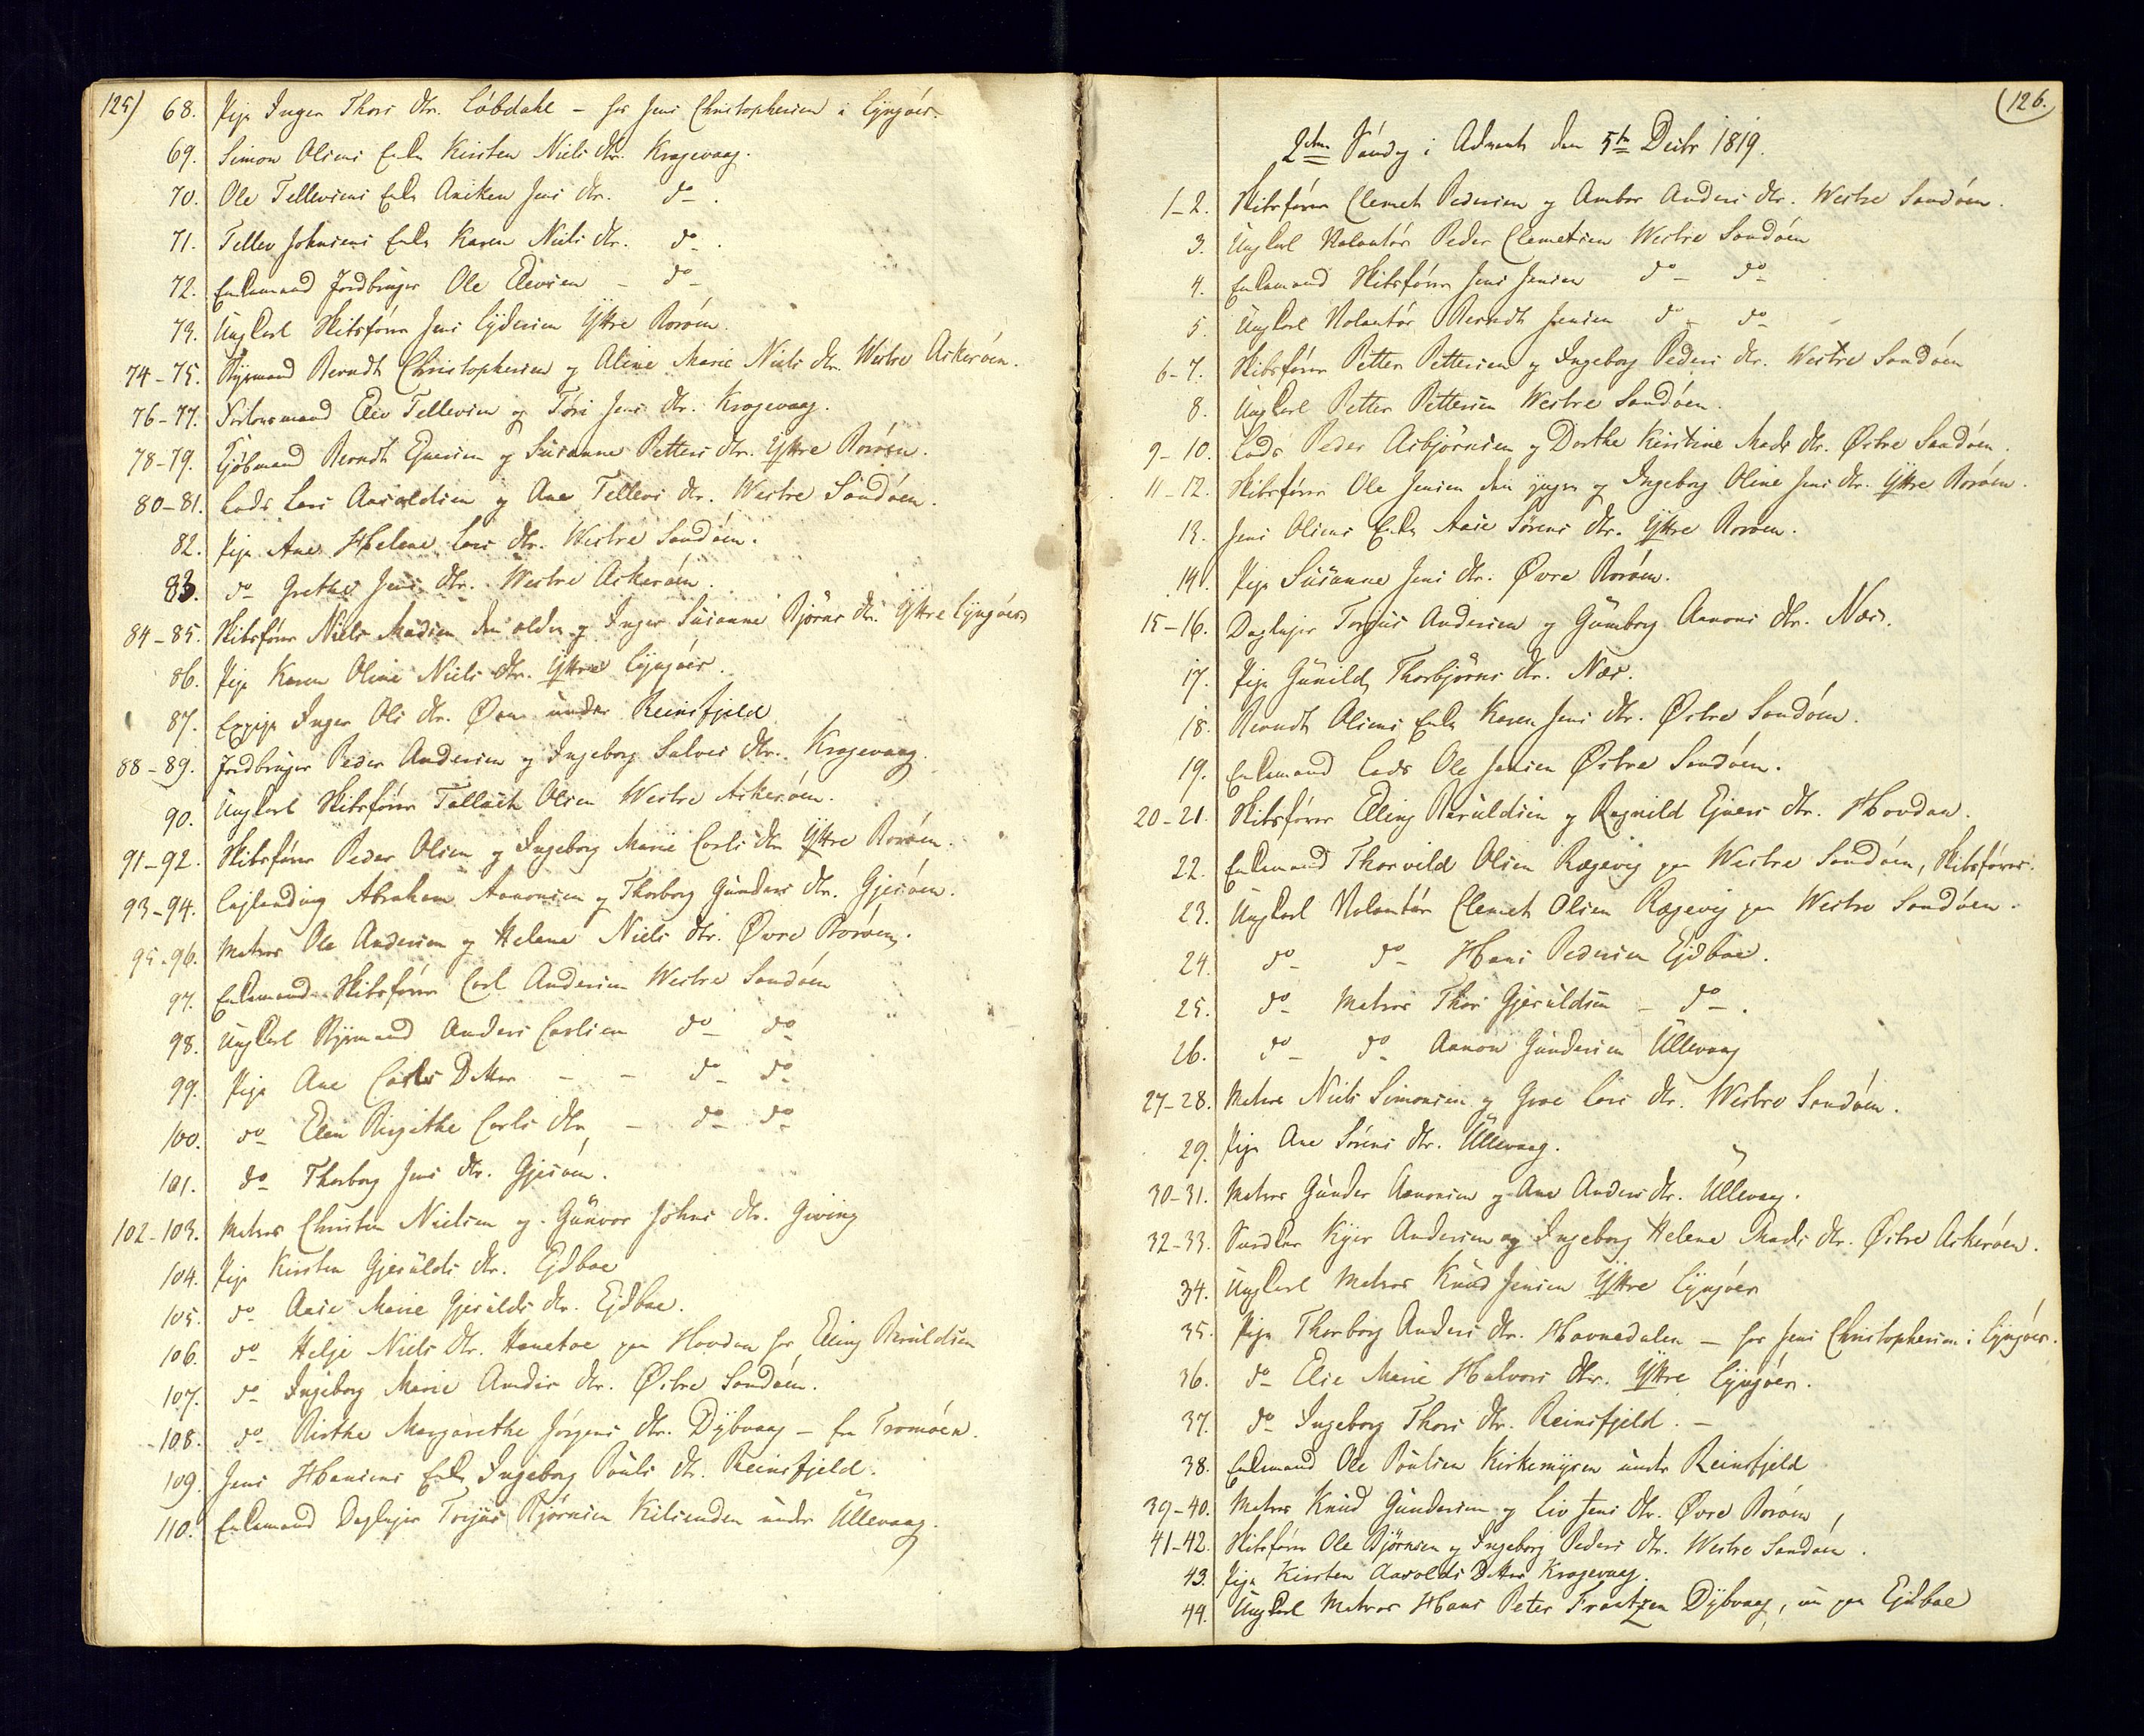 125)
68. Pige Inger Thors dtr. Løbdahl – hos Jens Christophersen i Lyngöer.
69. Simon Olsens Enke Kirsten Niels dtr. Kragevaag.
70. Ole Tellevsens Enke Aniken Jens dtr. do .
71. Tellev Johnsens Enke Karen Niels dtr. do .
72. Enkemand Jordbruger Ole Elevsen – do
73. Ungkarl Skibsförer Jens Lydersen Yttre Boröen.
74–75. Styrmand Berndt Christophersen og Aline Marie Niels dtr. Westre Askeröen.
76–77. Eliv Tellevsen og Töri Jens dtr. Kragevaag.
78–79. Kjöbmand Berndt Ejversen og Susanne Petters dtr. Yttre Boröen.
80–81. Lods Lars Aasoldsen og Ane Tellevs dtr. Westre Sandöen.
82. Pige Ane Helene Lars dtr. Westre Sandöen.
83. do Grethe Jens dtr. Westre Askeröen.
84–85. Skibsförer Niels Madsen den ældre og Inger Susanne Björns dtr. Yttre Lyngöer
86. Pige Karen Oline Niels dtr. Yttre Lyngöer.
87. Inger Ols dtr. under Reinsfjeld
88–89. Jordbruger Peder Andersen og Ingeborg Salves dtr. Kragevaag.
90. Ungkarl Skibsförer Tallach Olsen Westre Askeröen.
91–92. Skibsförer Peder Olsen og Ingeborg Marie Carls dtr Yttre Boröen.
93–94. Abraham Aanonsen og Thorborg Gunders dtr. Gjesöen.
95–96. Matros Ole Andersen og Helene Niels dtr. Øvre Boröen.
97. Enkemand Skibsförer Carl Andersen Westre Sandöen
98. Ungkarl Styrmand Anders Carlsen do do
99. Pige Ane Carls Datter – – do do
100. do Elen Birgithe Carls dtr – do do
101. do Thorborg Jens dtr. Gjesöen.
102–103. Matros Christen Nielsen og Gunvor Johns dtr. Giving
104. Pige Kirsten Gjerulds dtr. Ejdboe
105. do Aase Marie Gjerulds dtr. Ejdboe.
106. do Helje Niels Dtr. Hanetoe paa Hovdan hos Elling Bæruldsen
107. do Ingeborg Marie Anders dtr. Østre Sandöen.
108. do Birthe Margarethe Jörgens dtr. Dybvaag – fra Tromöen.
109. Jens Hansens Enke Ingeborg Pouls dtr. Reinsfjeld.
110. Enkemand Daglejer Torjus Björnsen Kilsenden under Ullevaag.
(126.
2den Söndag i Advent den 5te Decbr 1819.
1–2. Skibsförer Clemet Pedersen og Ambor Anders dtr. Westre Sandöen.
3. Ungkarl Volontör Peder Clemetsen Westre Sandöen
4. Enkemand Skibsförer Jens Jensen do – do
5. Ungkarl Volontör Berndt Jensen do – do –
6–7. Skibsförer Petter Pettersen og Ingeborg Peders dtr. Westre Sandöen
8. Ungkarl Petter Pettersen Westre Sandöen.
9–10. Lods Peder Asbjörnsen og Dorthe Kirstine Mads dtr. Østre Sandöen.
11–12. Skibsförer Ole Jensen den yngre og Ingeborg Oline Jens dtr. Yttre Boröen.
13. Jens Olsens Enke Aase Sörens dtr. Yttre Boröen.
14. Pige Susanne Jens dtr. Øvre Boröen.
15–16. Daglejer Torjus Andersen og Gunborg Aanons dtr. Næs.
17. Pige Gunild Thorbjörns dtr. Næs.
18. Berndt Olsens Enke Karen Jens dtr. Østre Sandöen.
19. Enkemand Lods Ole Jensen Østre Sandöen.
20–21. Skibsförer Elling Bæruldsen og Ragnild Ejvers dtr. Hovdan.
22. Enkemand Thorvild Olsen Rægevig paa Westre Sandöen, Skibsförer.
23. Ungkarl Volontör Clemet Olsen Rægevig paa Westre Sandöen.
24. do – do – Hans Pedersen Ejdboe.
25. do – Matros Thor Gjeruldsen – do – .
26. do – do Aanon Gundersen Ullevaag
27–28. Matros Niels Simonsen og Groe Lars dtr. Westre Sandöen.
29. Pige Ane Sörens dtr. Ullevaag.
30–31. Matros Gunder Aanonsen og Ane Anders dtr. Ullevaag.
32–33. Kyer Andersen og Ingeborg Helene Mads dtr. Østre Askeröen.
34. Ungkarl Matros Knud Jensen Yttre Lyngöer
35. Pige Thorborg Anders dtr. Havnedalen – hos Jens Christophersen i Lyngöer.
36. do Elie Marie Halvors dtr. Yttre Lyngöer.
37. do Ingeborg Thors dtr. Reinsfjeld. –
38. Enkemand Ole Poulsen Kirkemyren under Reinsfjeld
39–40. Matros Knud Gundersen og Liv Jens dtr. Øvre Boröen
41–42. Skibsförer Ole Björnsen og Ingeborg Peders dtr. Westre Sandöen.
43. Pige Kirsten Aasolds Datter Kragevaag.
44. Ungkarl Matros Hans Peter Frantzen Dybvaag, nu paa Ejdboe